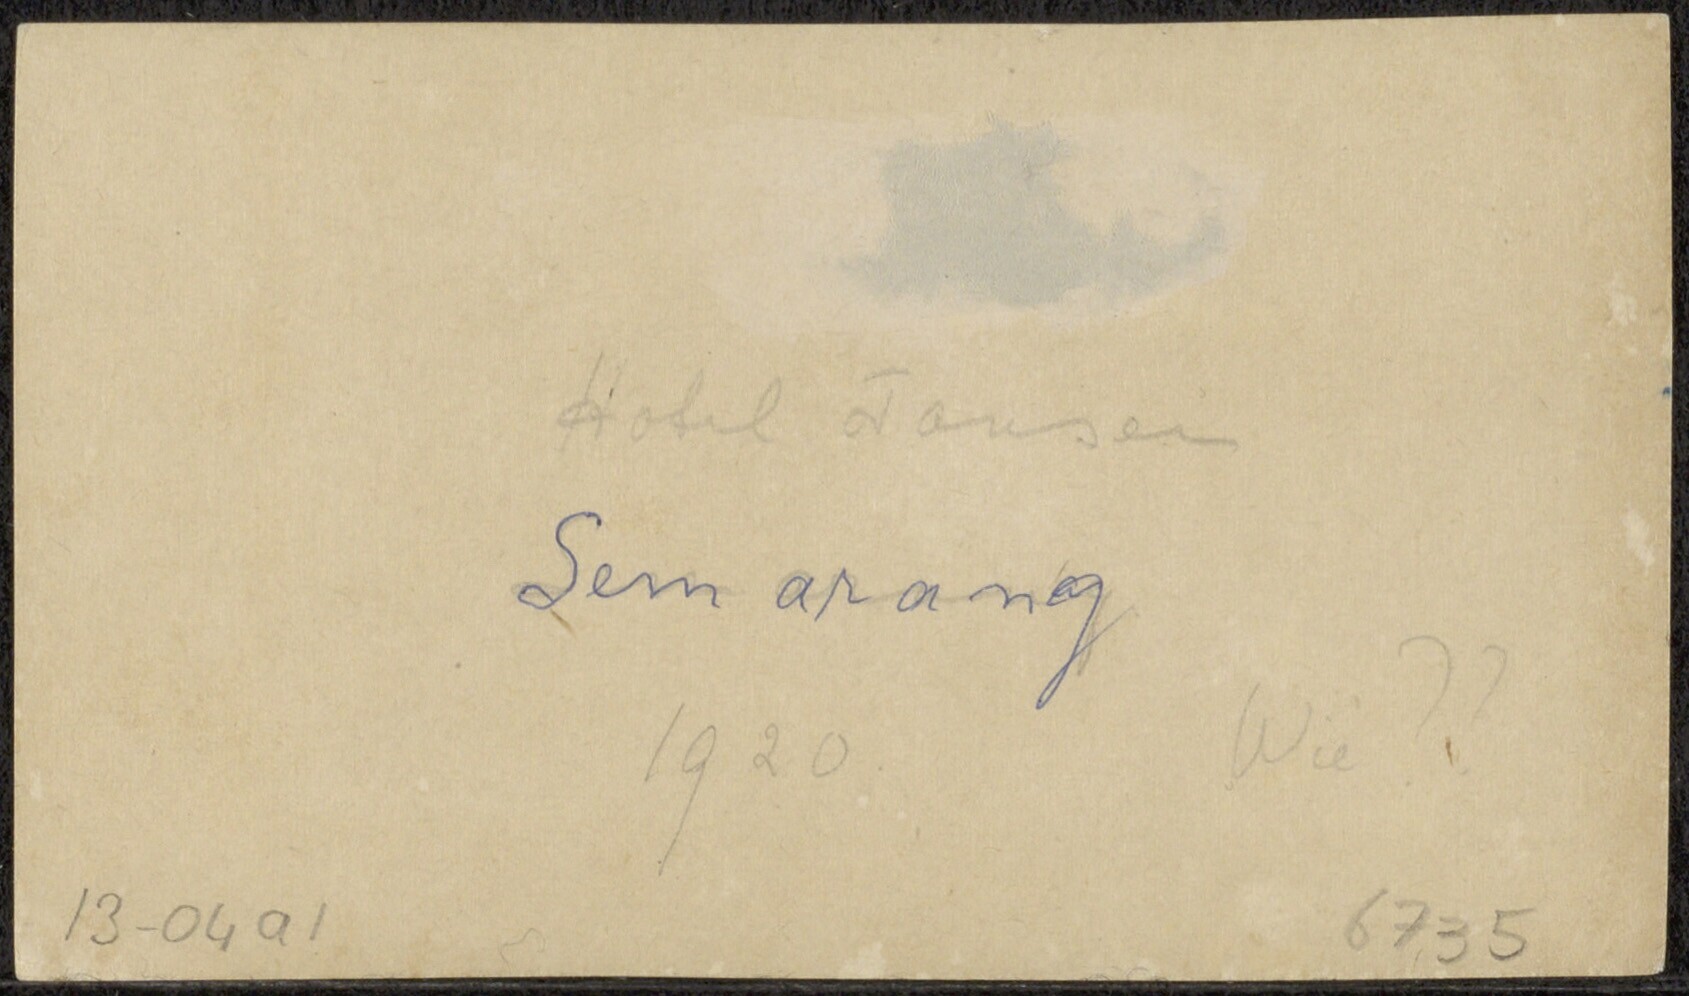 Hotel Jansen
Semarang
1920.
Wie ??
13-04a1
6735